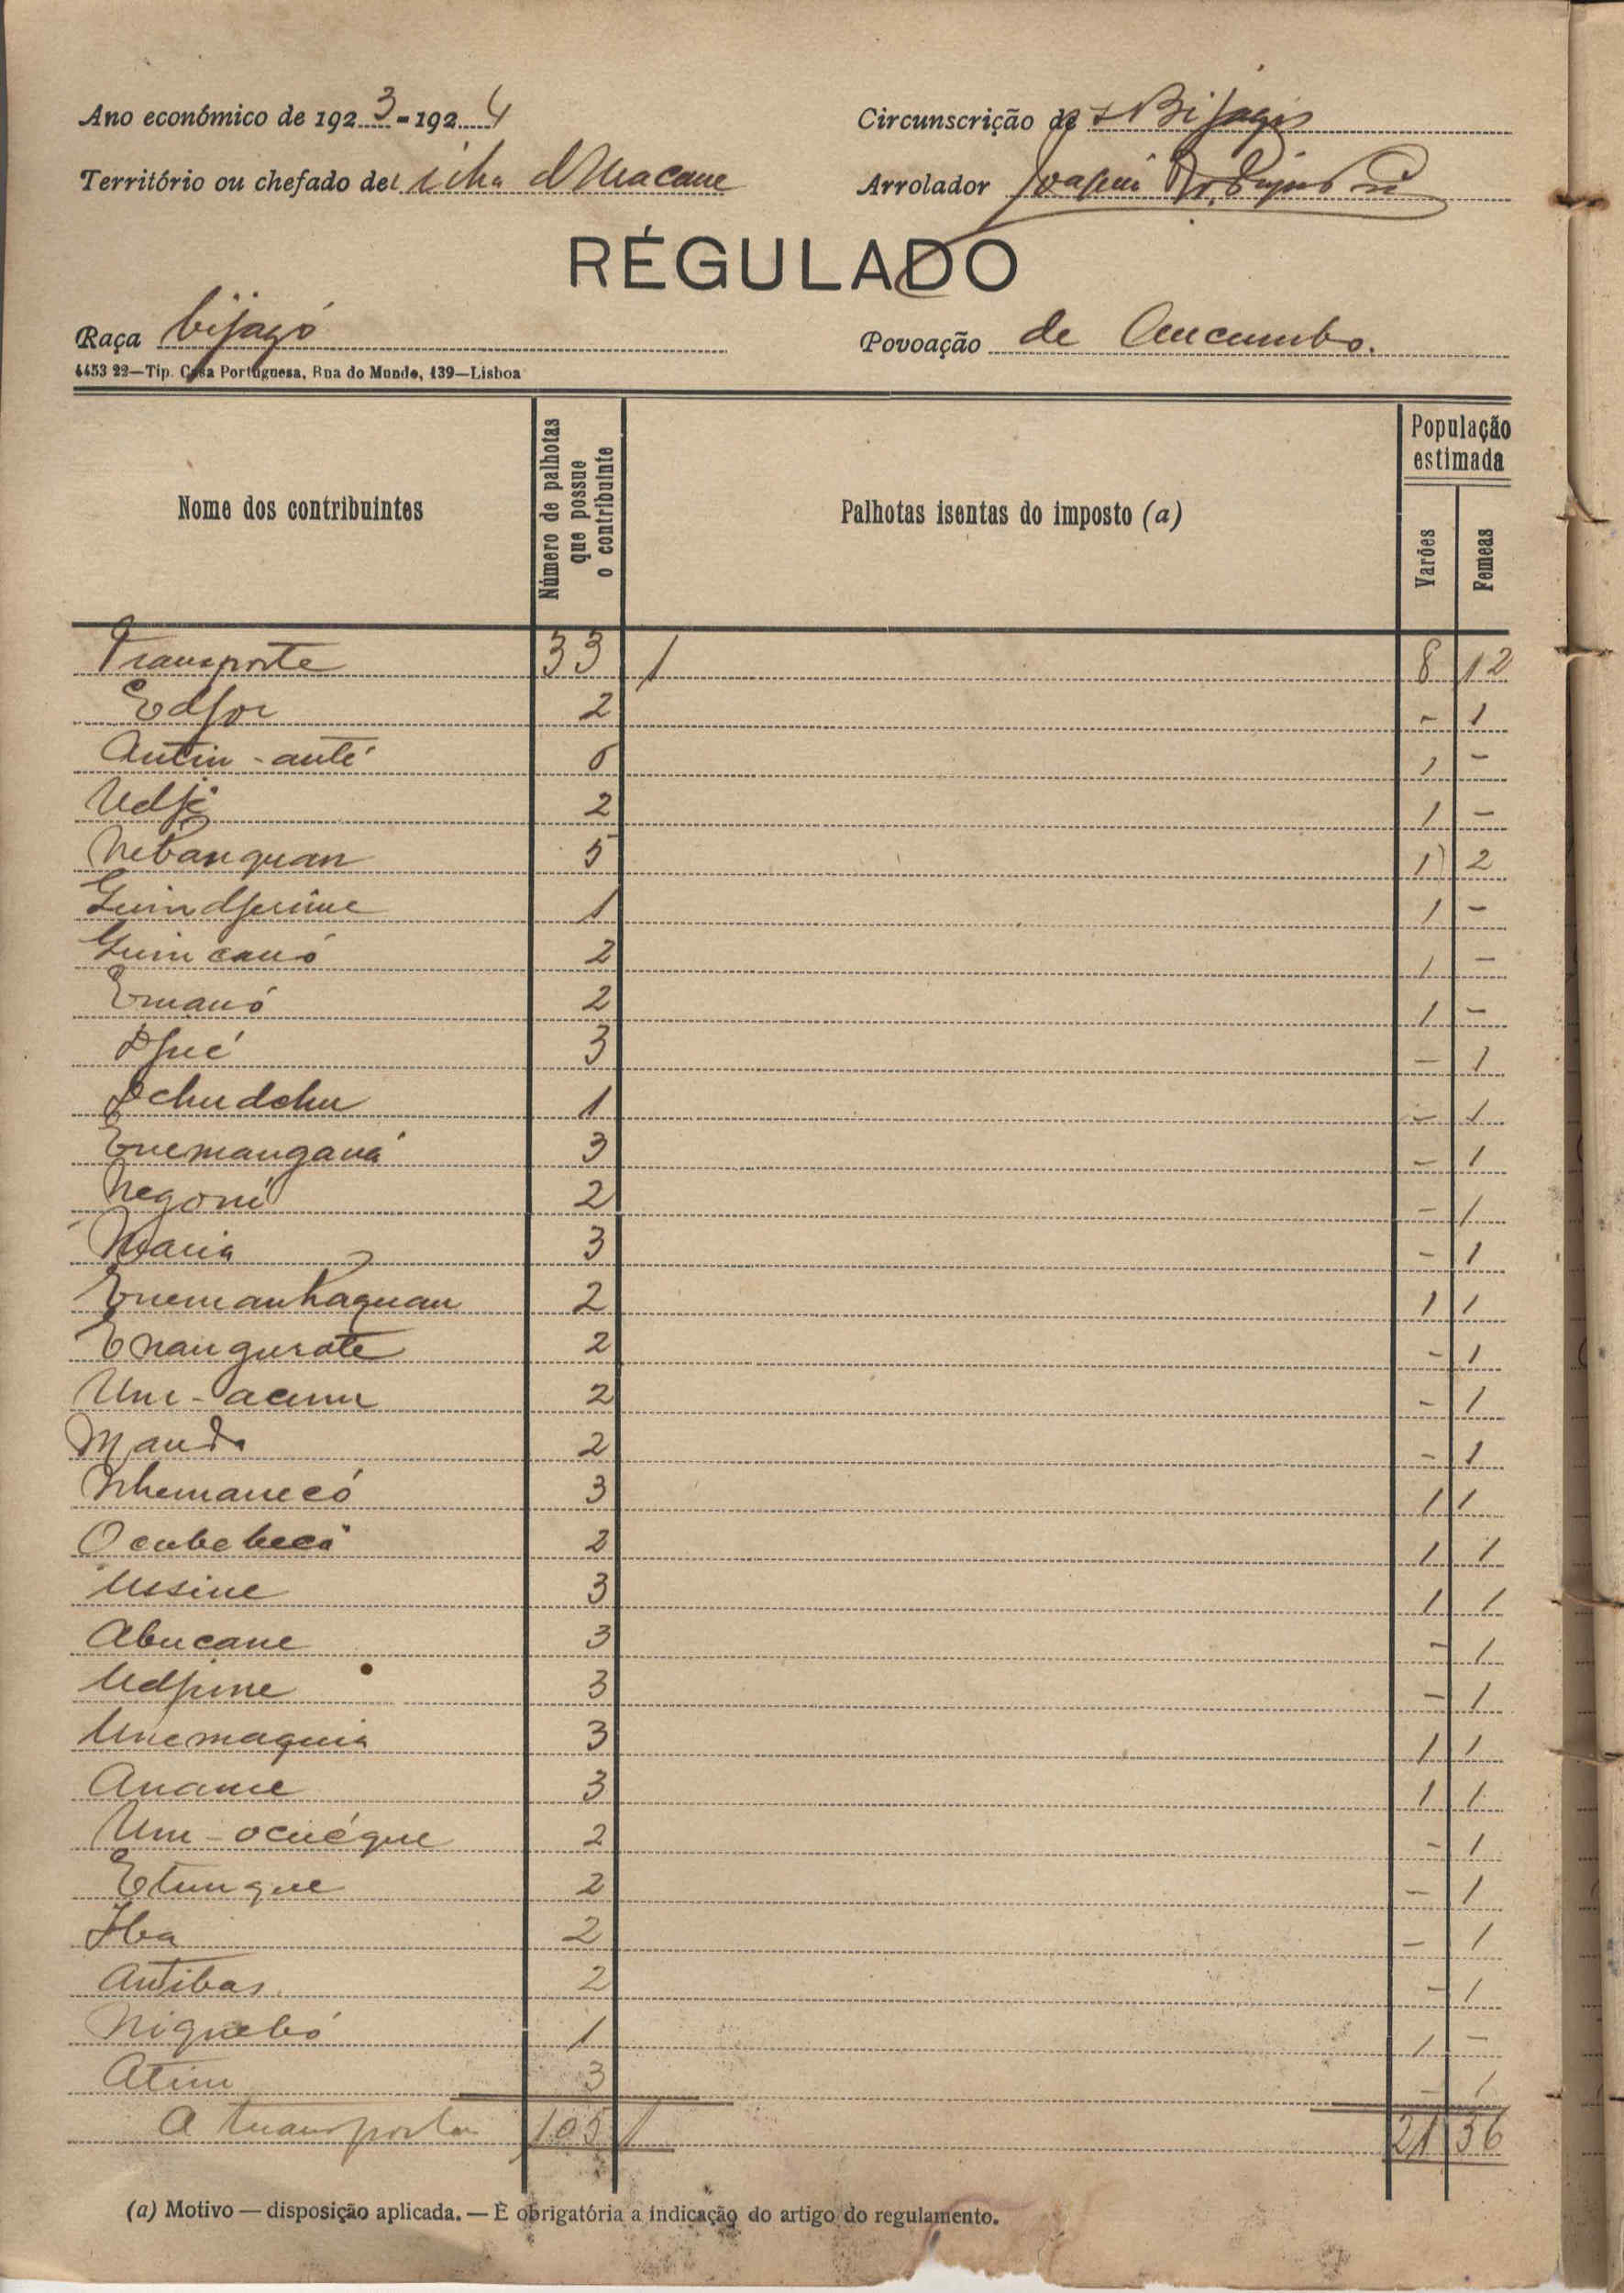 Ano económico de 1923-1924
Circunscrição de Bijagós
Território ou chefado de ilha d'Uracane
Arrolador Joaquim Rodrigues
RÉGULADO
Raça bijagó
Povoação de Ancumbo.
4453 22—Tip. Casa Portuguesa, Rua do Mundo, 139—Lisboa
Nome dos contribuintes
Número de palhotas que possue o contribuinte
Palhotas isentas do imposto (a)
População estimada
Varões
Femeas
Transporte 33 1 8 12
Edjor 2 - 1
Antin-anté 1 -
Udjé 2 1 -
Nebanquan 5 1 2
Guindjerime 1 1 -
Guincanó 2 1 -
Emanó 2 1 -
Djué 3 - 1
Dchudchu 1 - 1
Enemanganá 3 - 1
Negoni 2 - 1
Maria 3 - 1
Enemanhaguan 2 1 1
Enangurate 2 - 1
Une-acunu 2 - 1
Mando 2 - 1
Nhemanecó 3 1 1
Ocubebecá 2 1 1
Ussine 3 1 1
Abucane 3 - 1
Udjune 3 - 1
Unemaquia 3 1 1
Aname 3 1 1
Une-ocuéque 2 - 1
Etunque 2 - 1
Iba 2 - 1
Antibas 2 - 1
Niquebó 1 1 -
Atim 3 - 1
A transportar 105 1 21 36
(a) Motivo — disposição aplicada. — É obrigatória a indicação do artigo do regulamento.